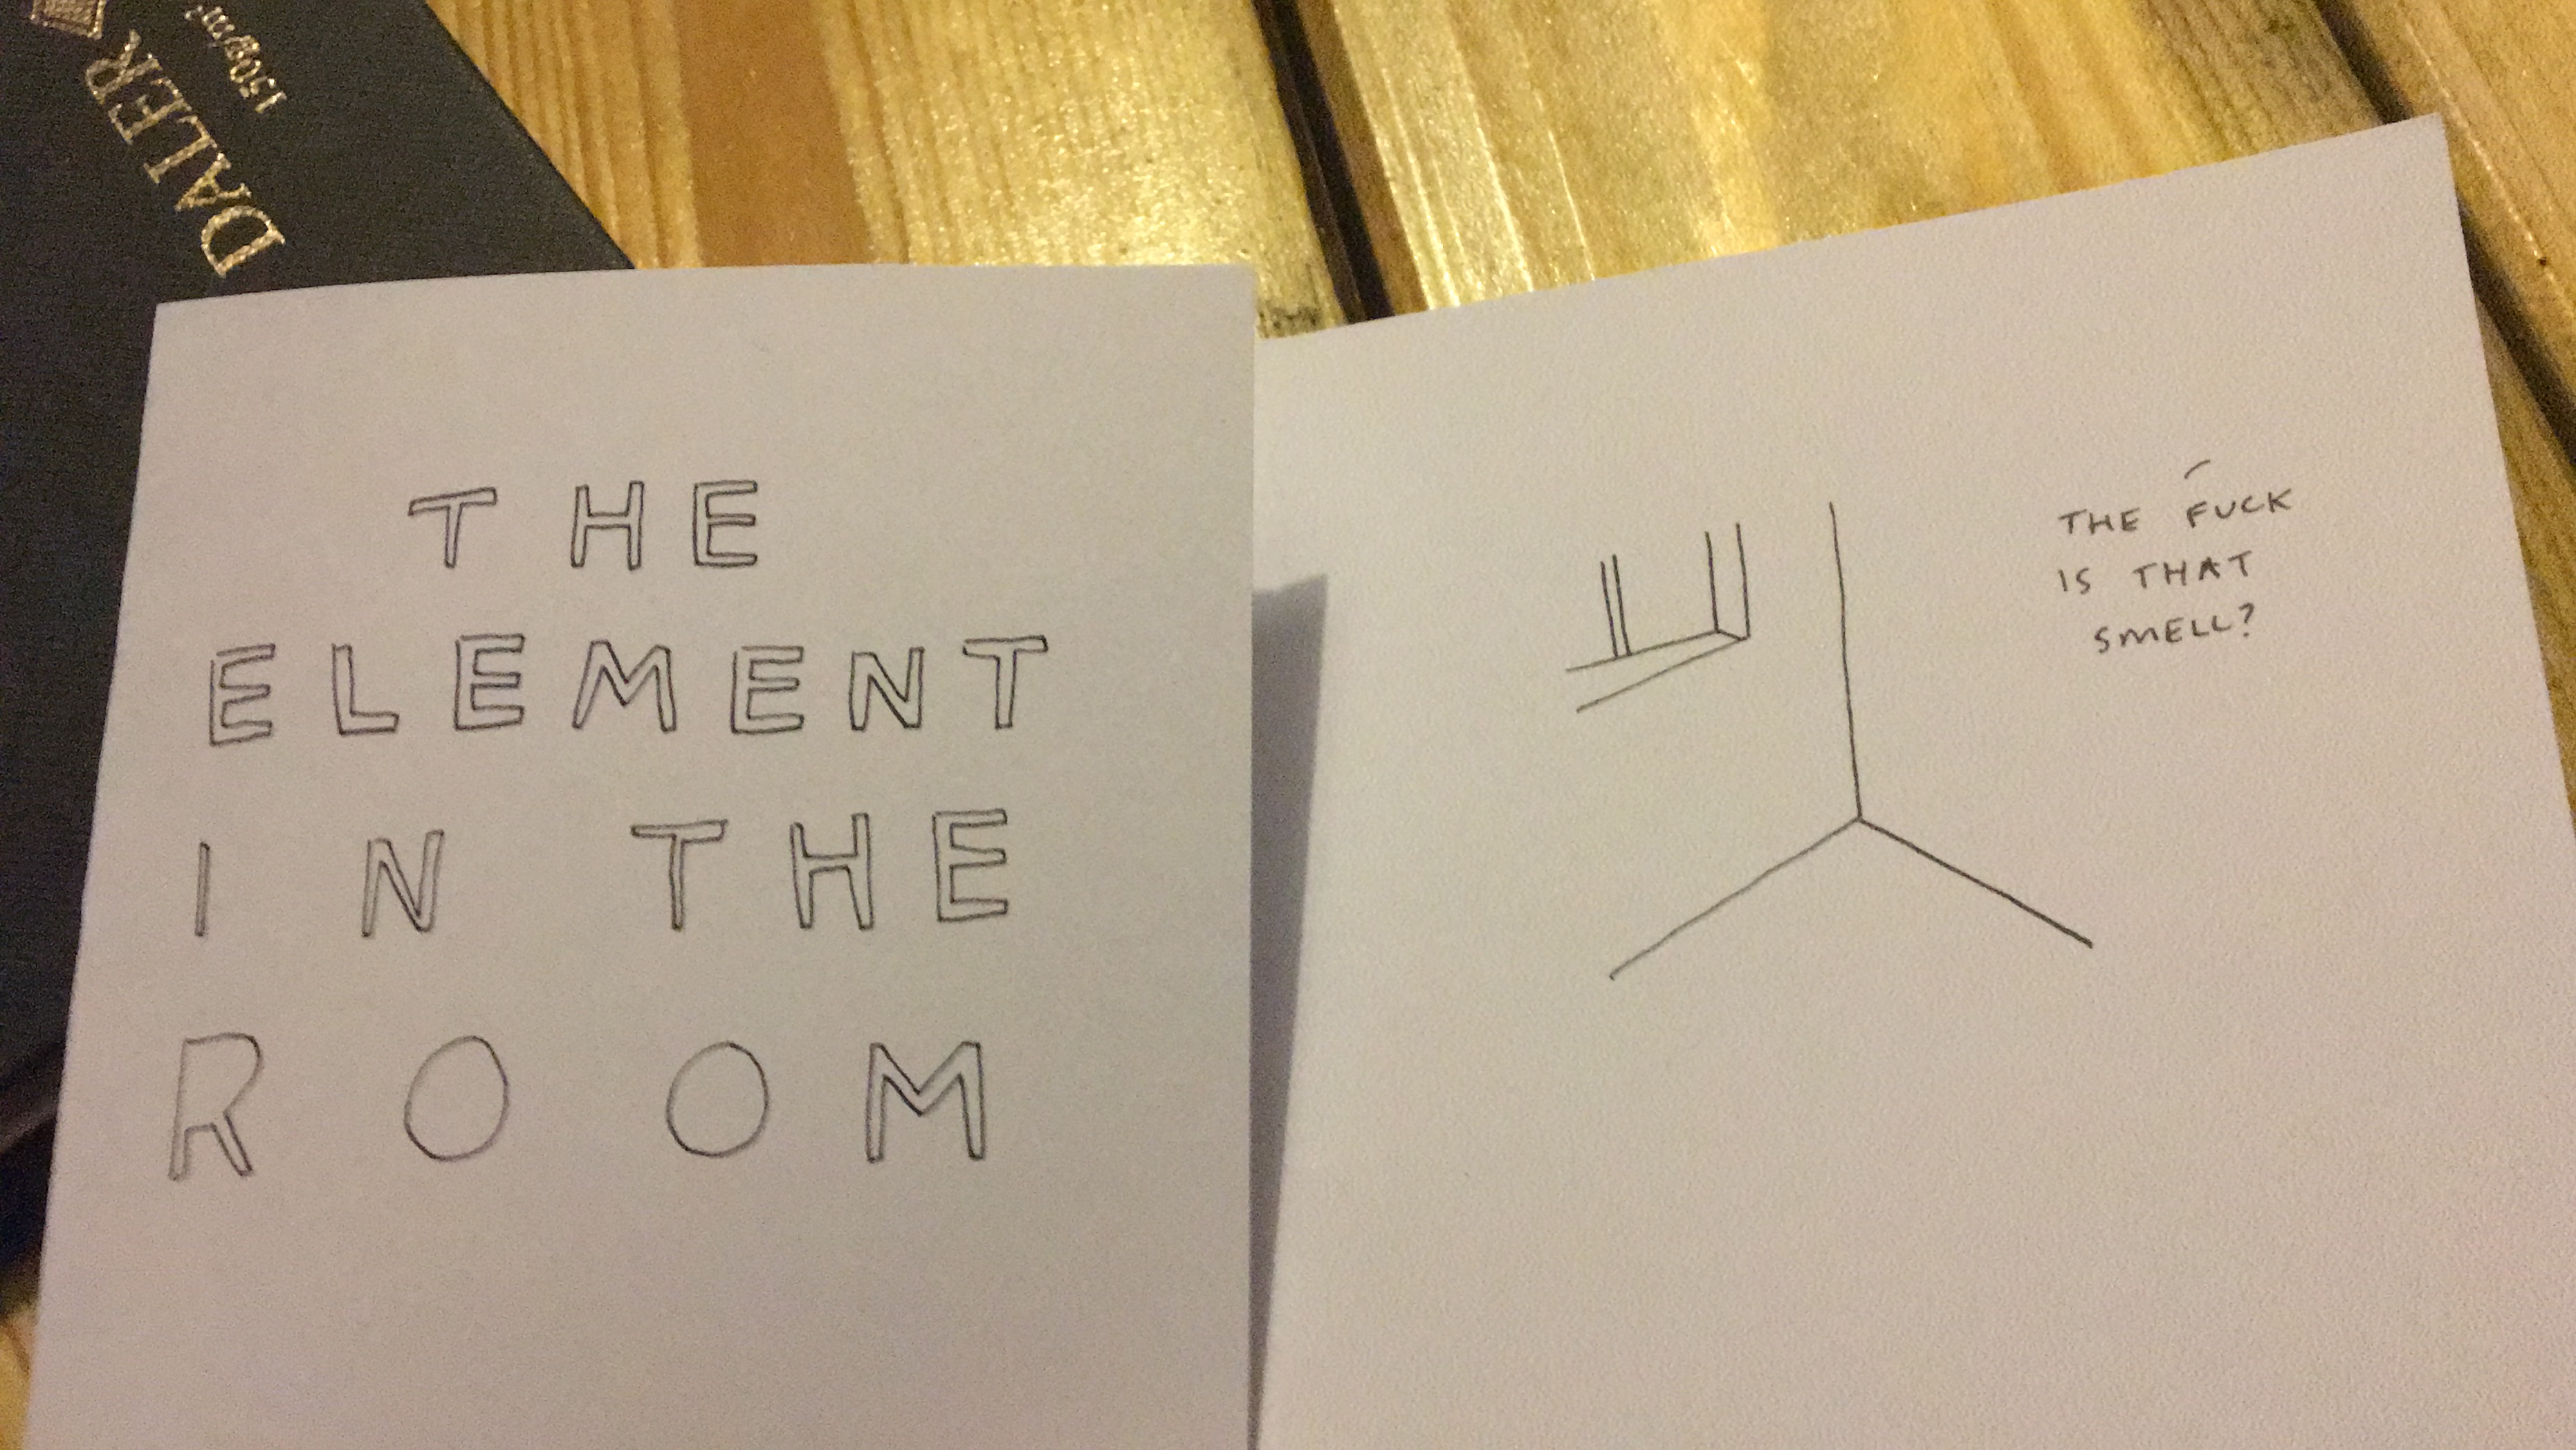 DALER
150g/m²
THE
ELEMENT
IN THE
ROOM
THE FUCK
IS THAT
SMELL?